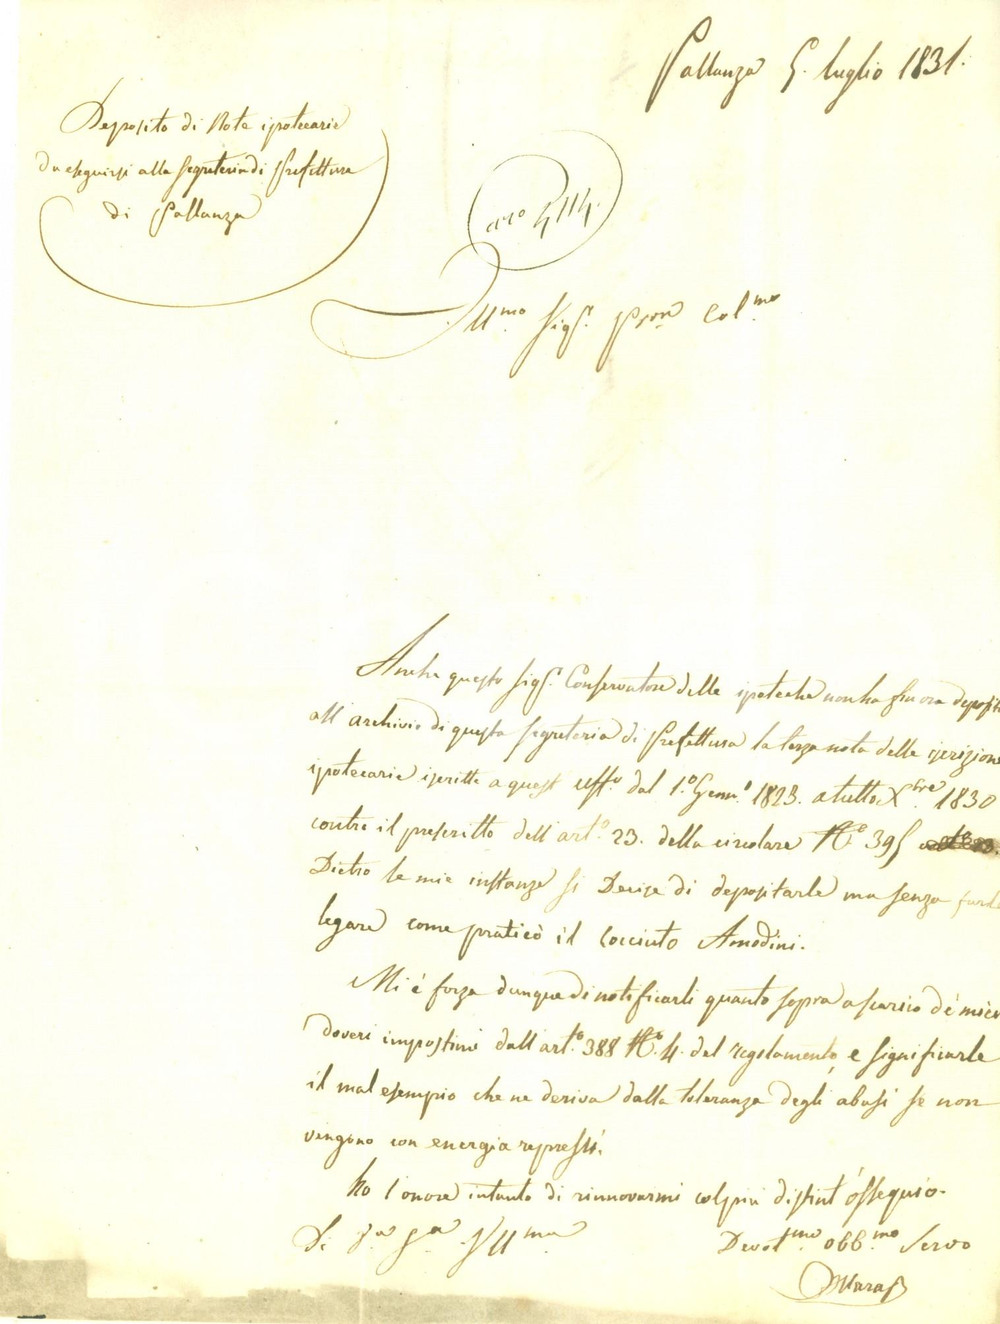 Pallanza 5. luglio 1831.
Deposito di Note ipotecarie
da eseguirsi alla Segreteria di Prefettura
di Pallanza
n.o 4114.
Ill.mo Sig.r Pron Col.mo
Anche questo Sig.r Conservatore delle ipoteche non ha finora deposit
all'archivio di questa Segreteria di Prefettura la terza nota delle iscrizione
ipotecarie iscritte a quest uff.o dal 1.o Genn.o 1823. a tutto Xbre 1830
contro il prescritto dell'art.o 23. della circolare N.o 395
Dietro le mie instanze si decise di depositarle ma senza farle
legare come praticò il Amodini.
Mi è forza dunque di notificarli quanto sopra a scarico de' miei
doveri impostimi dall'art.o 388 N.o 4. del regolamento, e significarle
il mal esempio che ne deriva dalla toleranza degli abusi se non
vengono con energia repressi.
ho l'onore intanto di rinnovarmi col più distint'ossequio.
Di V.a S.a Ill.ma
Devot.mo obb.mo Servo